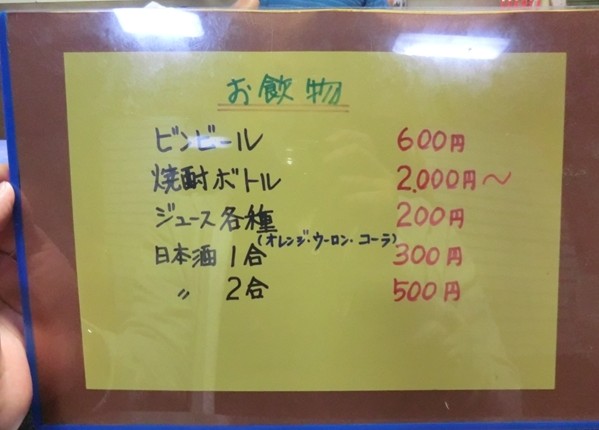 お飲物
ビンビール 600円
焼酎ボトル 2,000円〜
ジュース各種 200円
(オレンジ・ウーロン・コーラ)
日本酒 1合 300円
〃 2合 500円